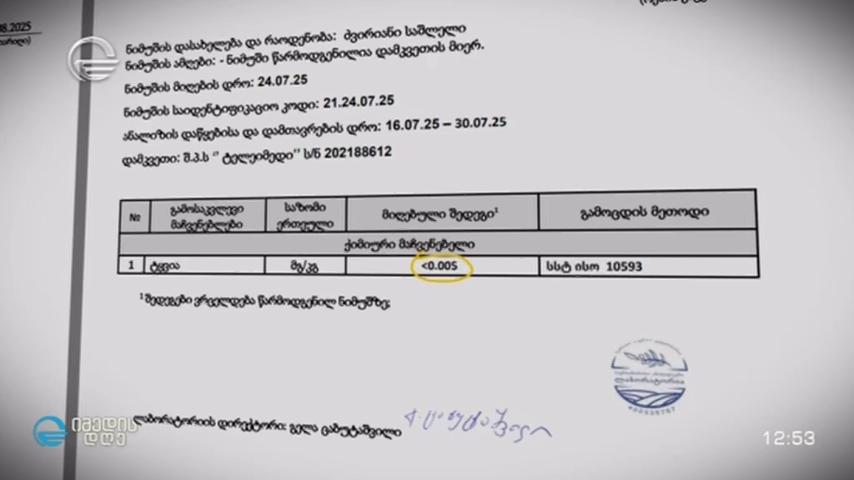 08.2025
ნიმუშის დასახელება და რაოდენობა: ძვირიანი საშლელი
ნიმუშის აღება: - ნიმუში წარმოდგენილია დამკვეთის მიერ.
ნიმუშის მიღების დრო: 24.07.25
ნიმუშის საიდენტიფიკაციო კოდი: 21.24.07.25
ანალიზის დაწყებისა და დამთავრების დრო: 16.07.25 – 30.07.25
დამკვეთი: შ.პ.ს " ტელეიმედი" ს/ნ 202188612
№ გამოსაკვლევი მაჩვენებლები საზომი ერთეული მიღებული შედეგი¹ გამოცდის მეთოდი
ქიმიური მაჩვენებელი
1 ტყვია მგ/კგ <0.005 სსტ ისო 10593
¹ შედეგები ვრცელდება წარმოდგენილ ნიმუშზე;
ლაბორატორია
ლაბორატორიის დირექტორი: გელა ცაბუტაშვილი
იმედის
დღე
12:53